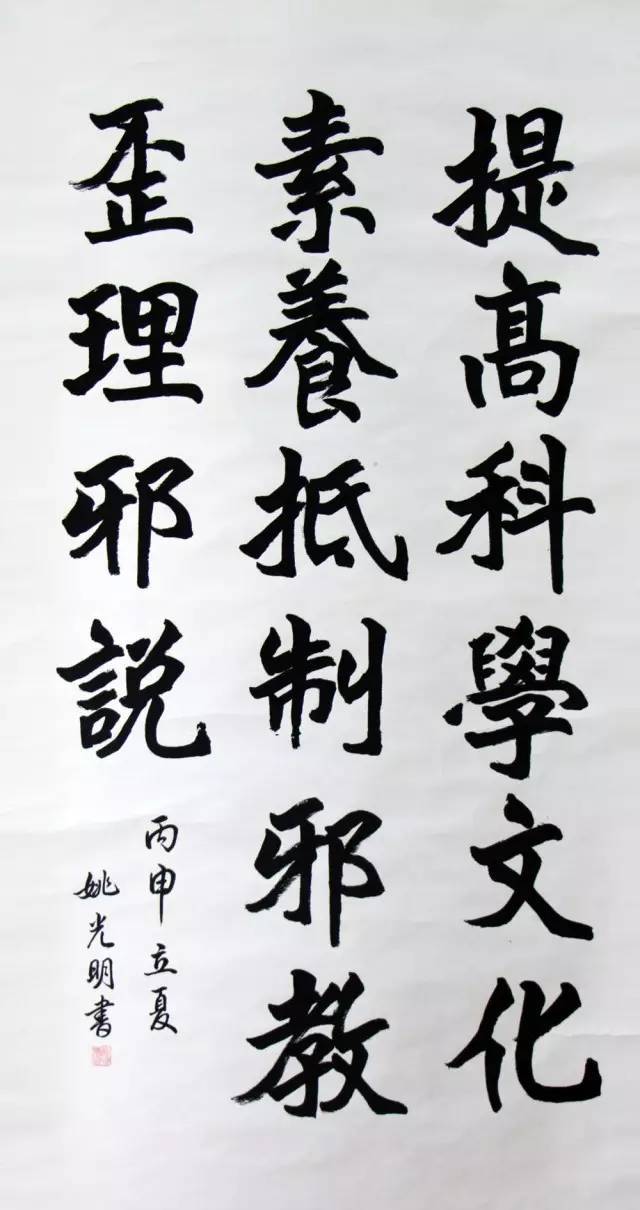 提高科學文化
素養抵制邪教
歪理邪説
丙申立夏
姚光明書